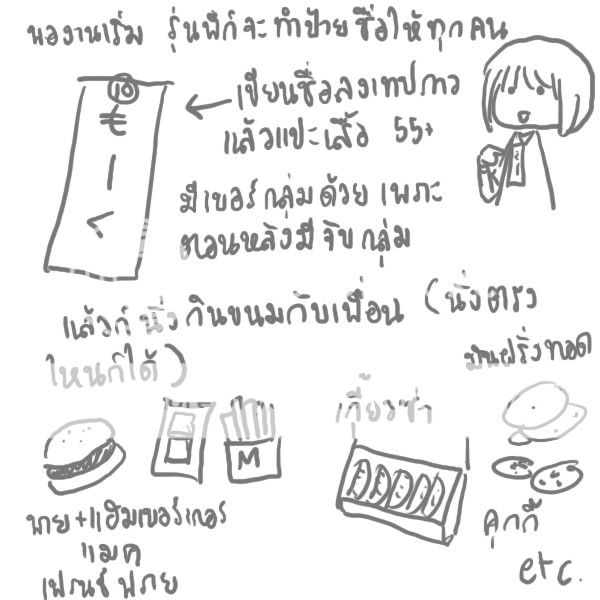 พองานเริ่ม รุ่นพี่ก็จะทำป้ายชื่อให้ทุกคน
10
もーく
เขียนชื่อลงเทปกาว
แล้วแปะเสื้อ 55+
มีเบอร์กลุ่มด้วย เพราะ
ตอนหลังมีจับกลุ่ม
แล้วก็นั่งกินขนมกับเพื่อน (นั่งตรง
ไหนก็ได้)
มันฝรั่งทอด
เกี๊ยวซ่า
M
พาย+แฮมเบอร์เกอร์
แมค
เฟรนช์ฟราย
คุกกี้
etc.